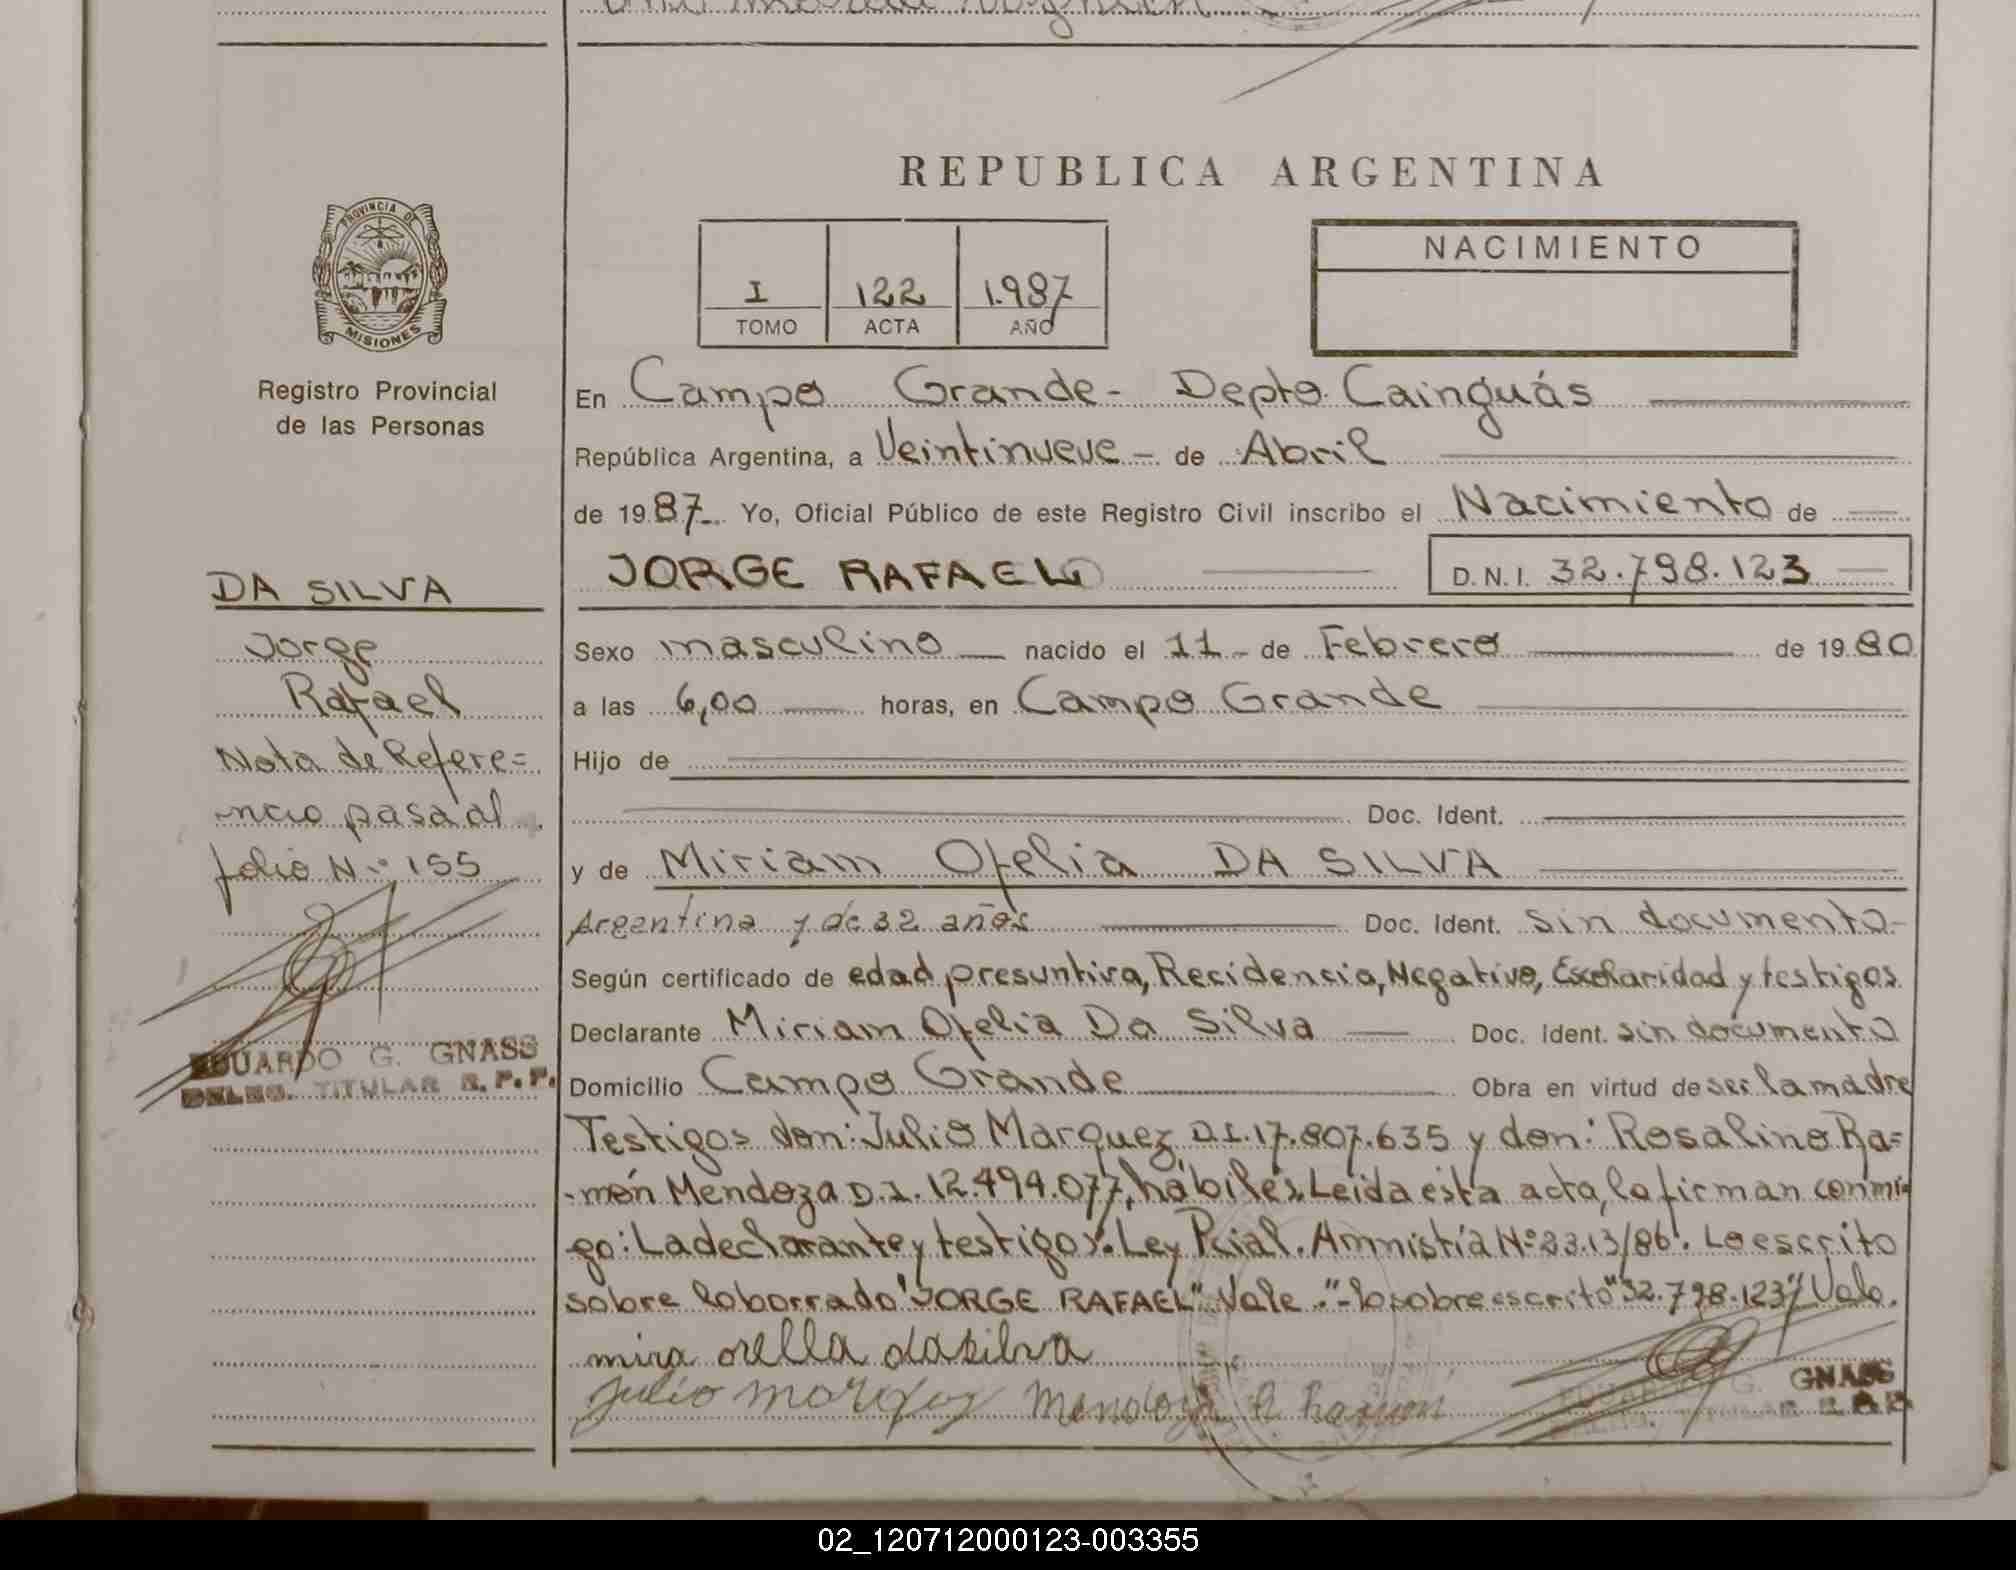 REPUBLICA ARGENTINA
PROVINCIA DE
MISIONES
Registro Provincial
de las Personas
I 122 1.987
TOMO ACTA AÑO
NACIMIENTO
En Campo Grande - Depto. Cainguás
República Argentina, a Veintinueve - de Abril
de 1987 Yo, Oficial Público de este Registro Civil inscribo el Nacimiento de
JORGE RAFAEL
D.N.I. 32.798.123
DA SILVA
Jorge
Rafael
Nota de Refere=
ncia pasa al
folio N.º 155
EDUARDO G. GNASS
DELEG. TITULAR R. P. P.
Sexo masculino nacido el 11 - de Febrero de 1980
a las 6,00 horas, en Campo Grande
Hijo de
Doc. Ident.
y de Miriam Ofelia DA SILVA
Argentina y de 32 años Doc. Ident. Sin documento -
Según certificado de edad presuntiva, Recidencia, Negativo, Escolaridad y testigos
Declarante Miriam Ofelia Da Silva Doc. Ident. sin documento
Domicilio Campo Grande Obra en virtud de ser la madre
Testigos don: Julio Marquez D.I. 17.807.635 y don: Rosalino Ra=
-món Mendoza D.I. 12.494.077, hábiles. Leída esta acta, la firman conmi-
go: La declarante y testigos. Ley Pcial. Amnistía Nº 23.13/86. Lo escrito
sobre lo borrado "JORGE RAFAEL" Vale. "- lo sobre escrito "32.798.123" Vale.
mira orella dasilva
Julio Mendoza R Ramon
GNASS
02_120712000123-003355